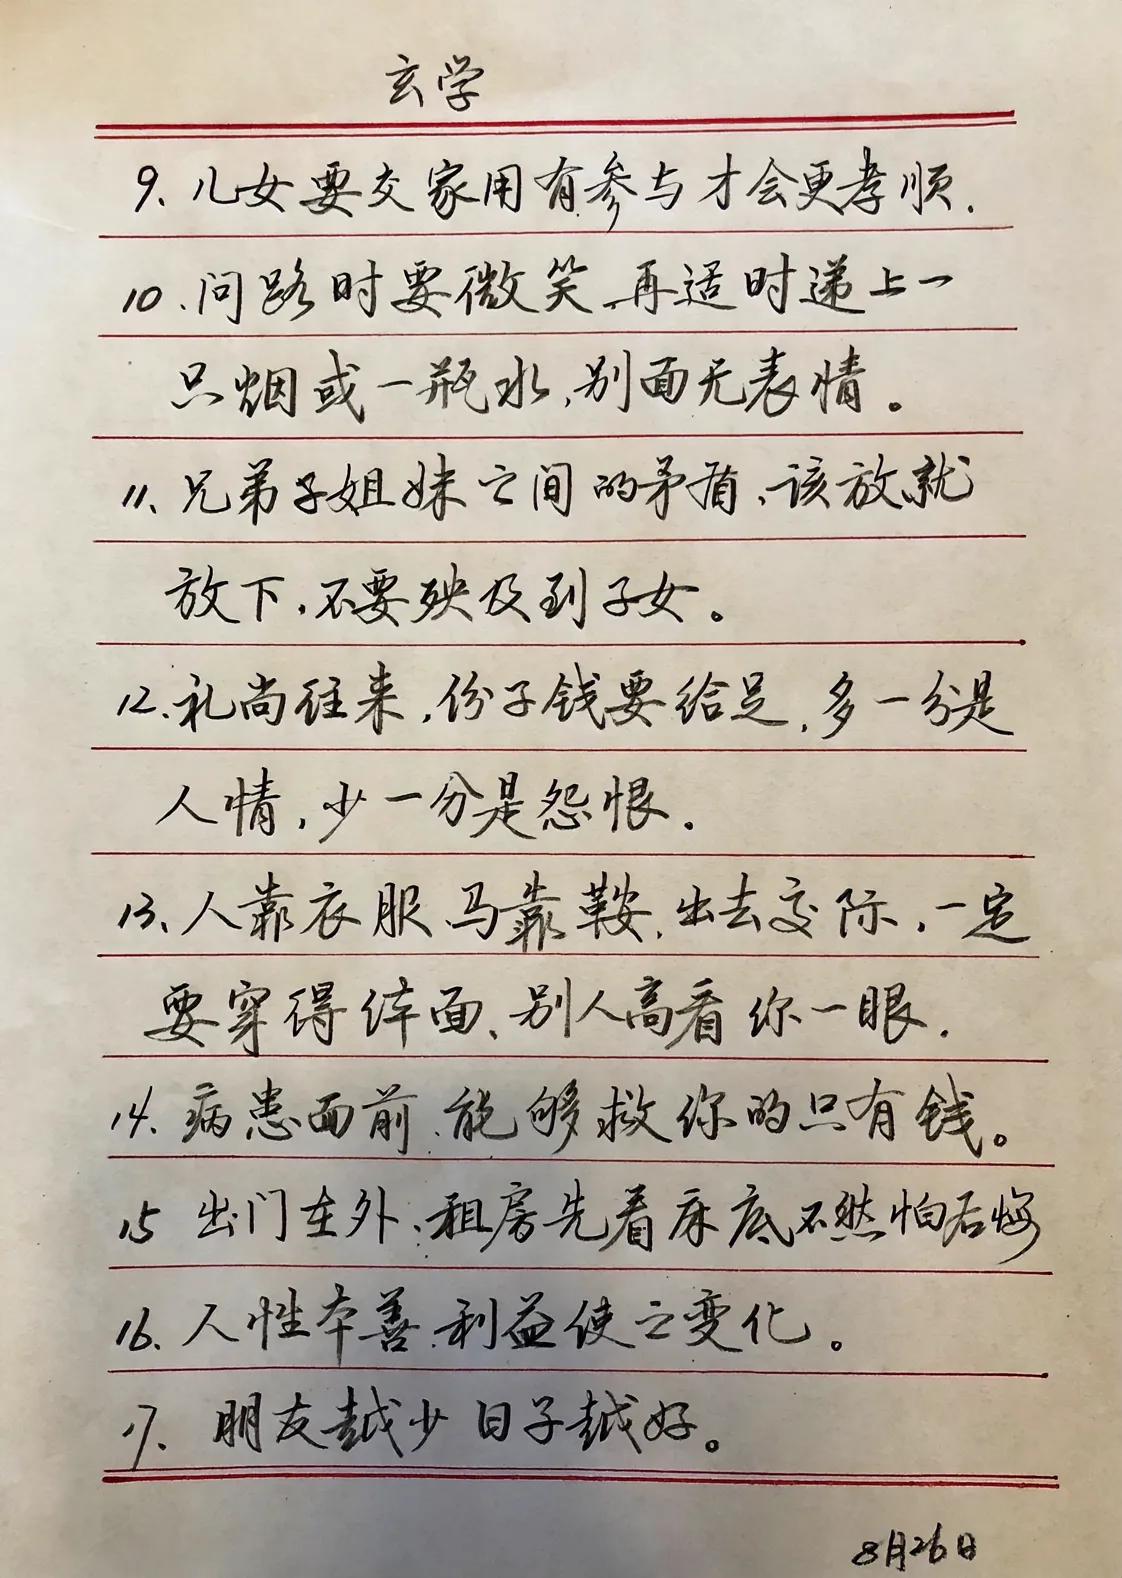 玄学
9、儿女要交家用有参与才会更孝顺.
10、问路时要微笑、再适时递上一
只烟或一瓶水,别面无表情。
11、兄弟子姐妹之间的矛盾、该放就
放下,不要殃及到子女。
12、礼尚往来,份子钱要给足,多一分是
人情,少一分是怨恨.
13、人靠衣服、马靠鞍,出去交际,一定
要穿得体面、别人高看你一眼.
14、病患面前、能够救你的只有钱。
15 出门在外、租房先看床底不然怕后悔
16、人性本善、利益使之变化。
17、朋友越少日子越好。
8月26日